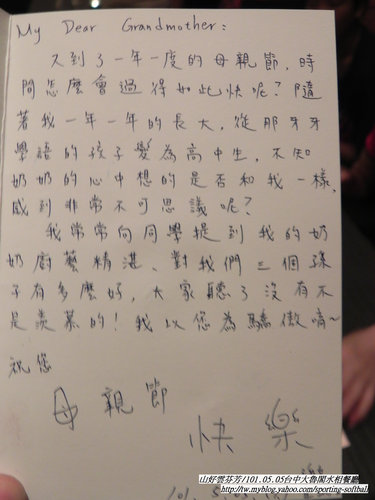 My Dear Grandmother:
又到了一年一度的母親節，時
間怎麼會過得如此快呢？隨
著我一年一年的長大，從那牙牙
學語的孩子變為高中生，不知
奶奶的心中想的是否和我一樣，
感到非常不可思議呢？
我常常向同學提到我的奶
奶廚藝精湛、對我們三個孫
子有多麼好，大家聽了沒有不
是羨慕的！我以您為驕傲唷~
祝您
母親節
快樂
101.
山好雲芬芳/101.05.05台中大魯閣水相餐廳
http://tw.myblog.yahoo.com/sporting-softball